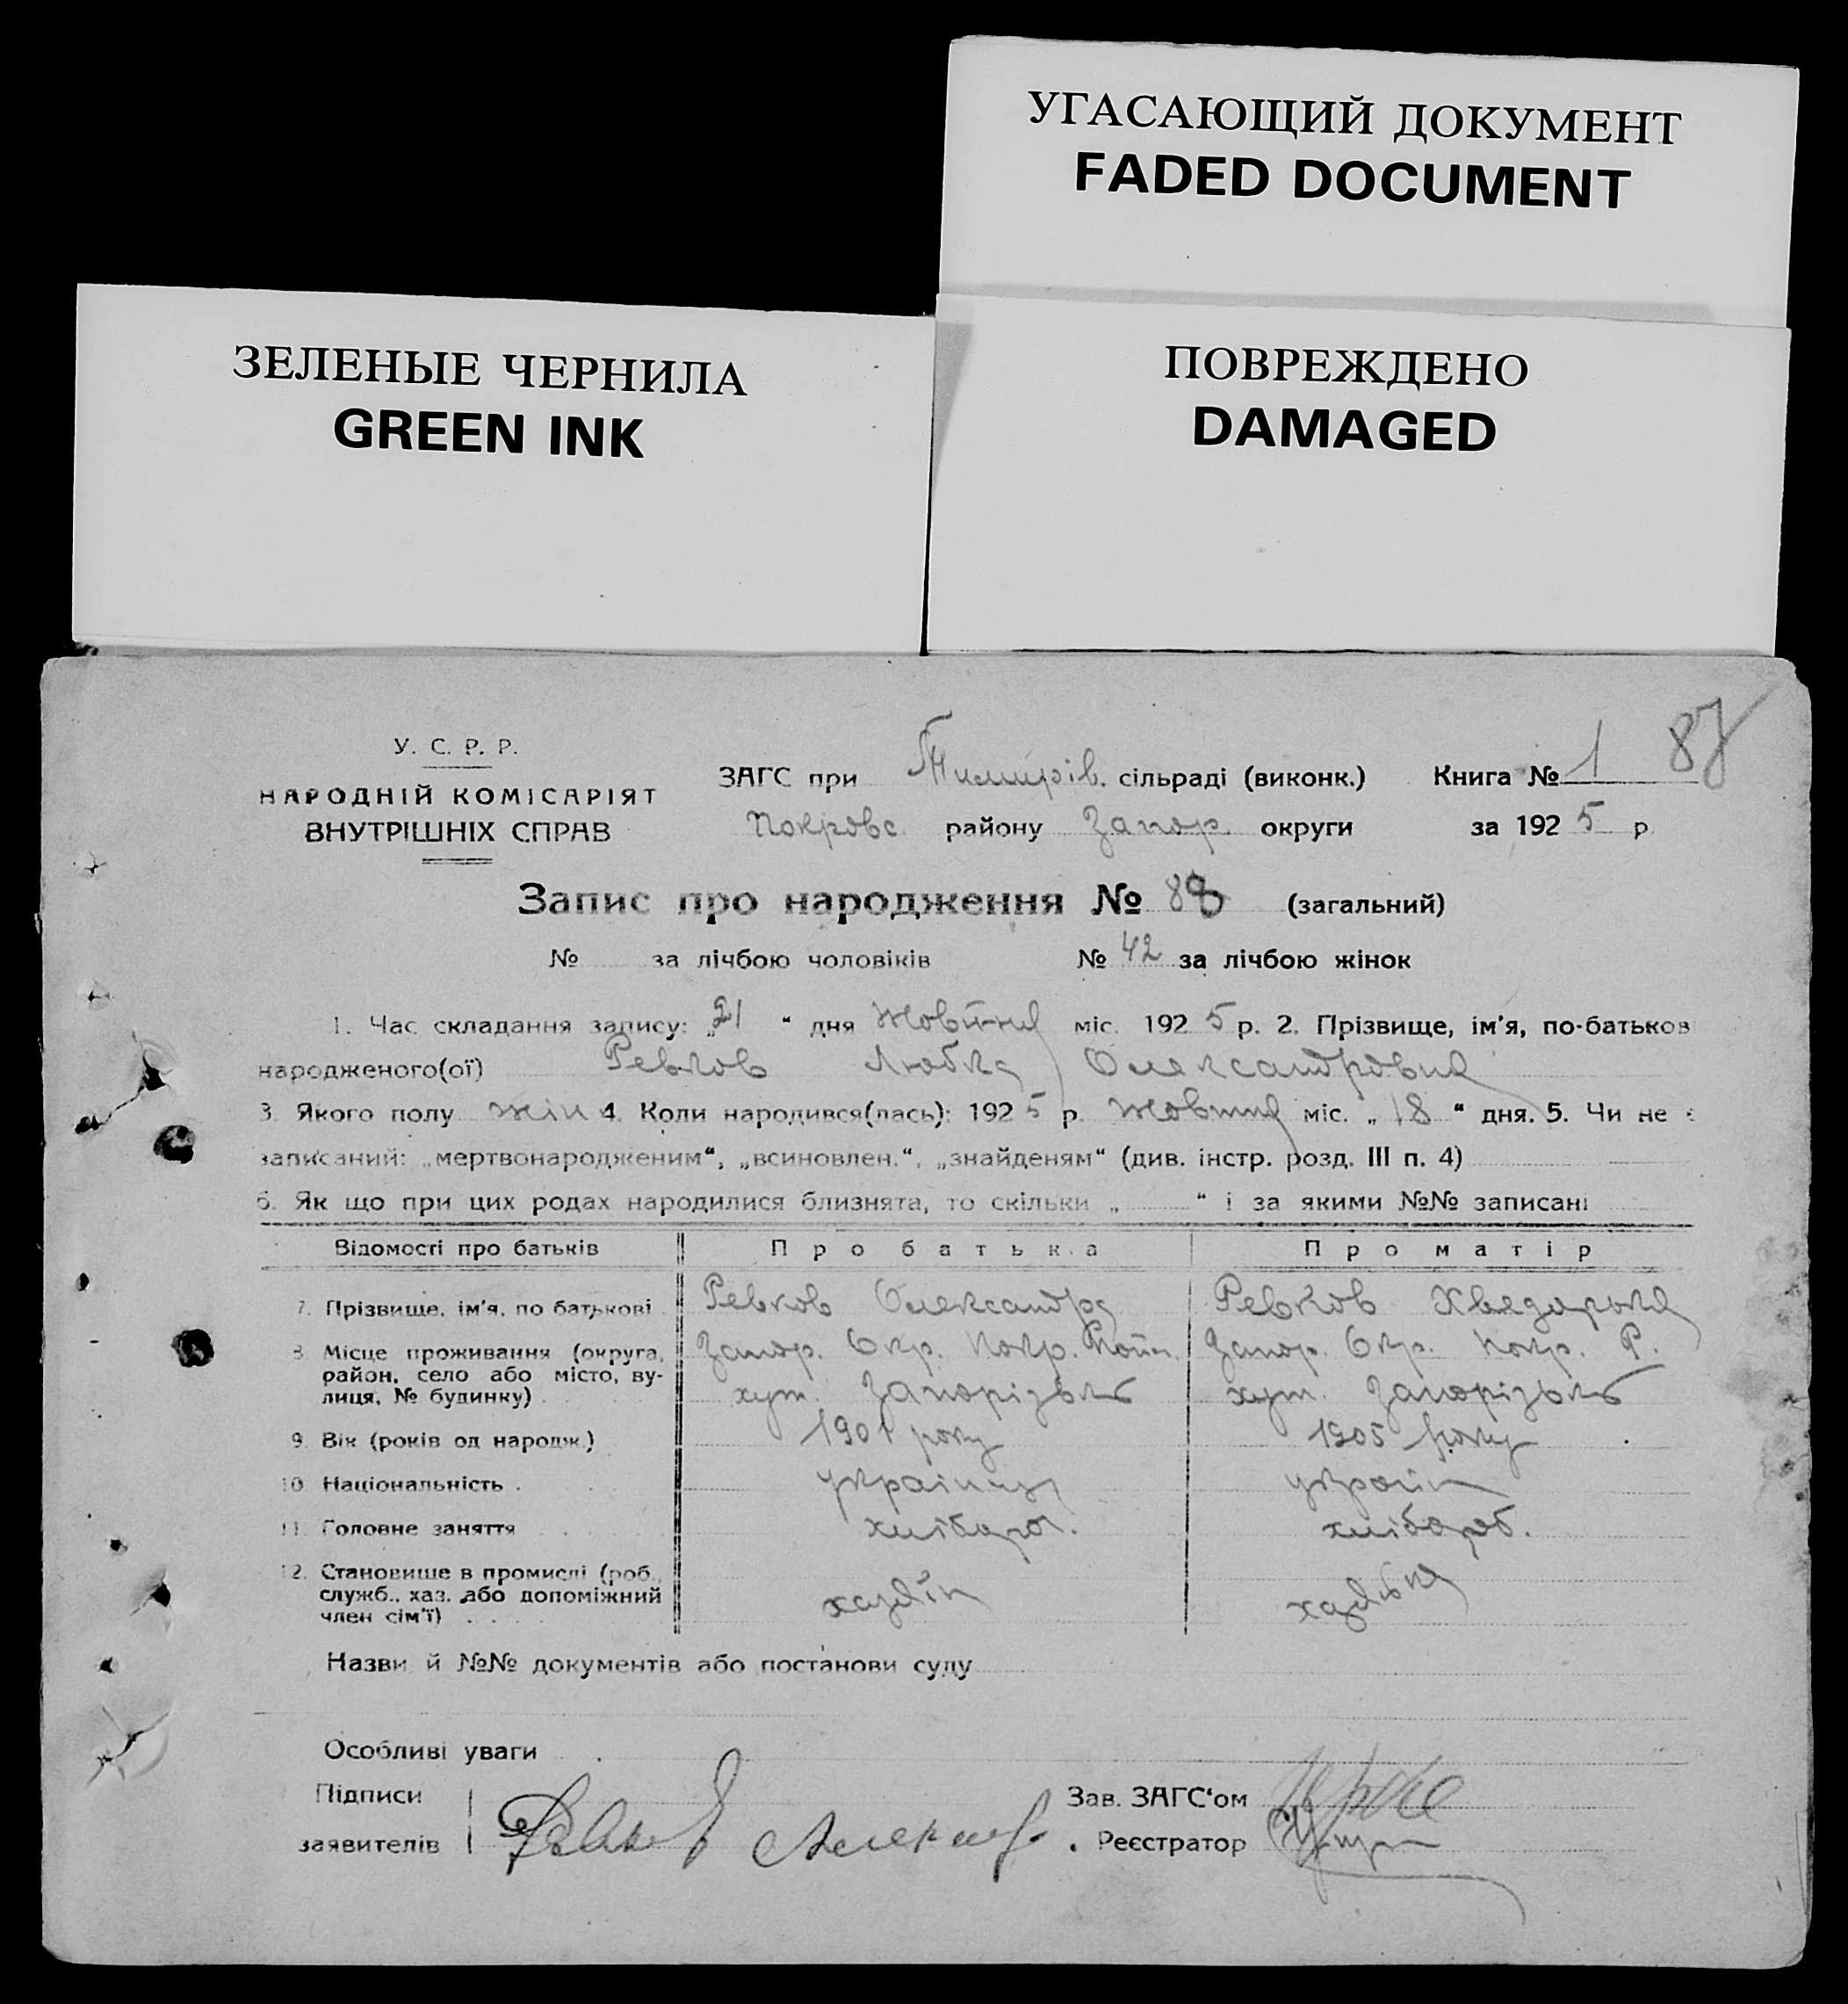 УГАСАЮЩИЙ ДОКУМЕНТ
FADED DOCUMENT
ЗЕЛЕНЫЕ ЧЕРНИЛА
GREEN INK
ПОВРЕЖДЕНО
DAMAGED
87
У. С. Р. Р.
НАРОДНІЙ КОМІСАРІЯТ
ВНУТРІШНІХ СПРАВ
ЗАГС при сільраді (виконк.) Книга № 1
Покровс. району Запор. округи за 1925 р
Запис про народження № 88 (загальний)
№ за лічбою чоловіків № 42 за лічбою жінок
1. Час складання запису: „21“ дня Жовтня міс. 1925 р. 2. Прізвище, ім'я, по-батьков
народженого(ої) Ревков Любка Олександровна
3. Якого полу жін 4. Коли народився(лась): 1925 р. Жовтня міс. „18“ дня. 5. Чи не є
записаний: „мертвонародженим“, „всиновлен.“, „знайденям“ (див. інстр. розд. III п. 4)
6. Як що при цих родах народилися близнята, то скільки „ “ і за якими №№ записані
Відомості про батьків Про батька Про матір
7. Прізвище, ім'я, по батькові Ревков Олександра Ревков Хведорька
8. Місце проживання (округа, район, село або місто, вулиця, № будинку) Запор. Окр. Покр. Запор. Окр. Покр. Р.
хут. Запорізьке хут. Запорізьке
9. Вік (років од народж.) 1901 року 1905 року
10. Національність українц україн
11. Головне заняття хлібороб. хлібороб.
12. Становище в промислі (роб., служб., хаз. або допоміжний член сім'ї) хазяїн хазяйка
Назви й №№ документів або постанови суду
Особливі уваги
Підписи
заявителів Ревков Александр.
Зав. ЗАГС'ом
Реєстратор